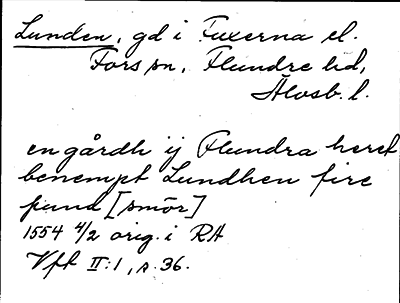 Lunden, gd i Fuxerna el.
Fors sn, Flundre hd,
Älvsb. l.
en gårdh ij Flundra heret
benempt Lundhen fire
pund [smör]
1554 4/2 orig. i RA
Vft II:1, s. 36.